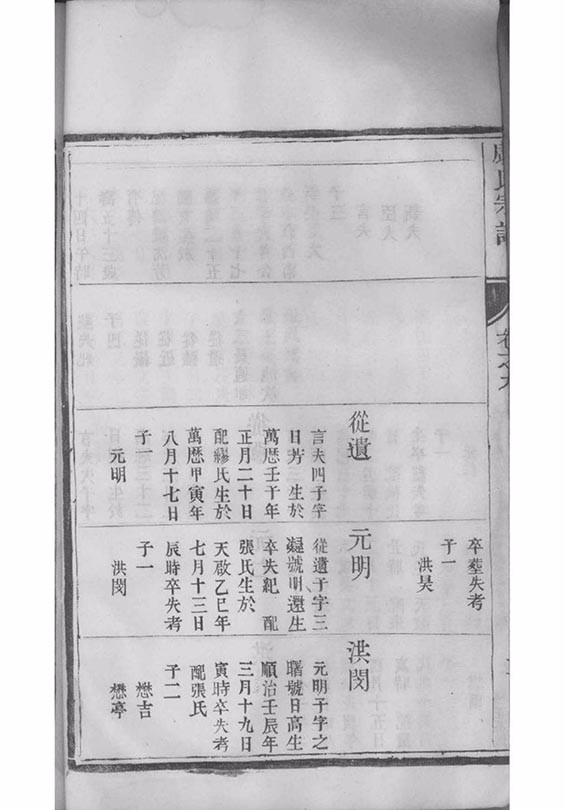 氏宗譜
卷之
從遺
言夫四子字
日芳 生於
萬厯壬午年
正月二十日
配繆氏生於
萬厯甲寅年
八月十七日
子一
元明
卒塟失考
子一
洪昊
元明
從遺子字三
號明還生
卒失紀 配
張氏生於
天啟乙巳年
七月十三日
辰時卒失考
子一
洪閔
洪閔
元明子字之
曙號日高生
順治壬辰年
三月十九日
寅時卒失考
配張氏
子二
懋吉
懋亭